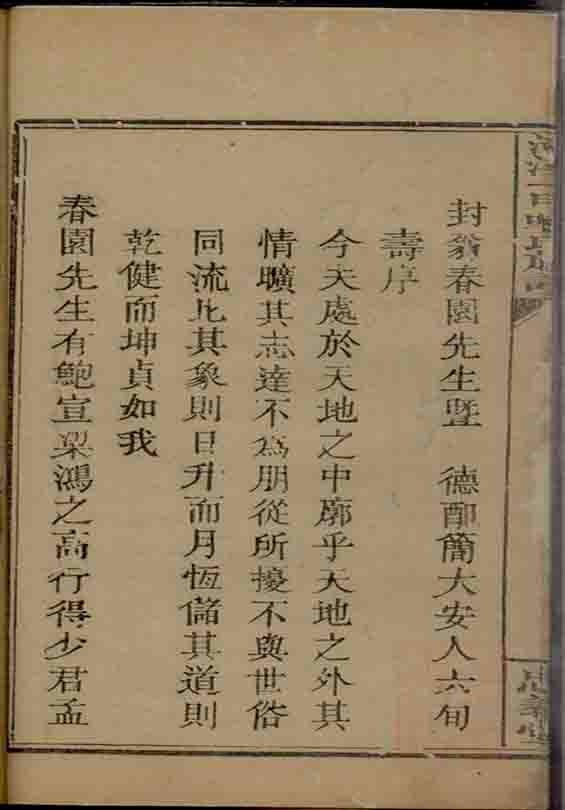 封翁春園先生暨　德配簡大安人六旬
壽序
今夫處於天地之中廓乎天地之外其
情曠其志達不為朋從所擾不與世俗
同流比其象則日升而月恆儲其道則
乾健而坤貞如我
春園先生有鮑宣梁鴻之高行得少君孟